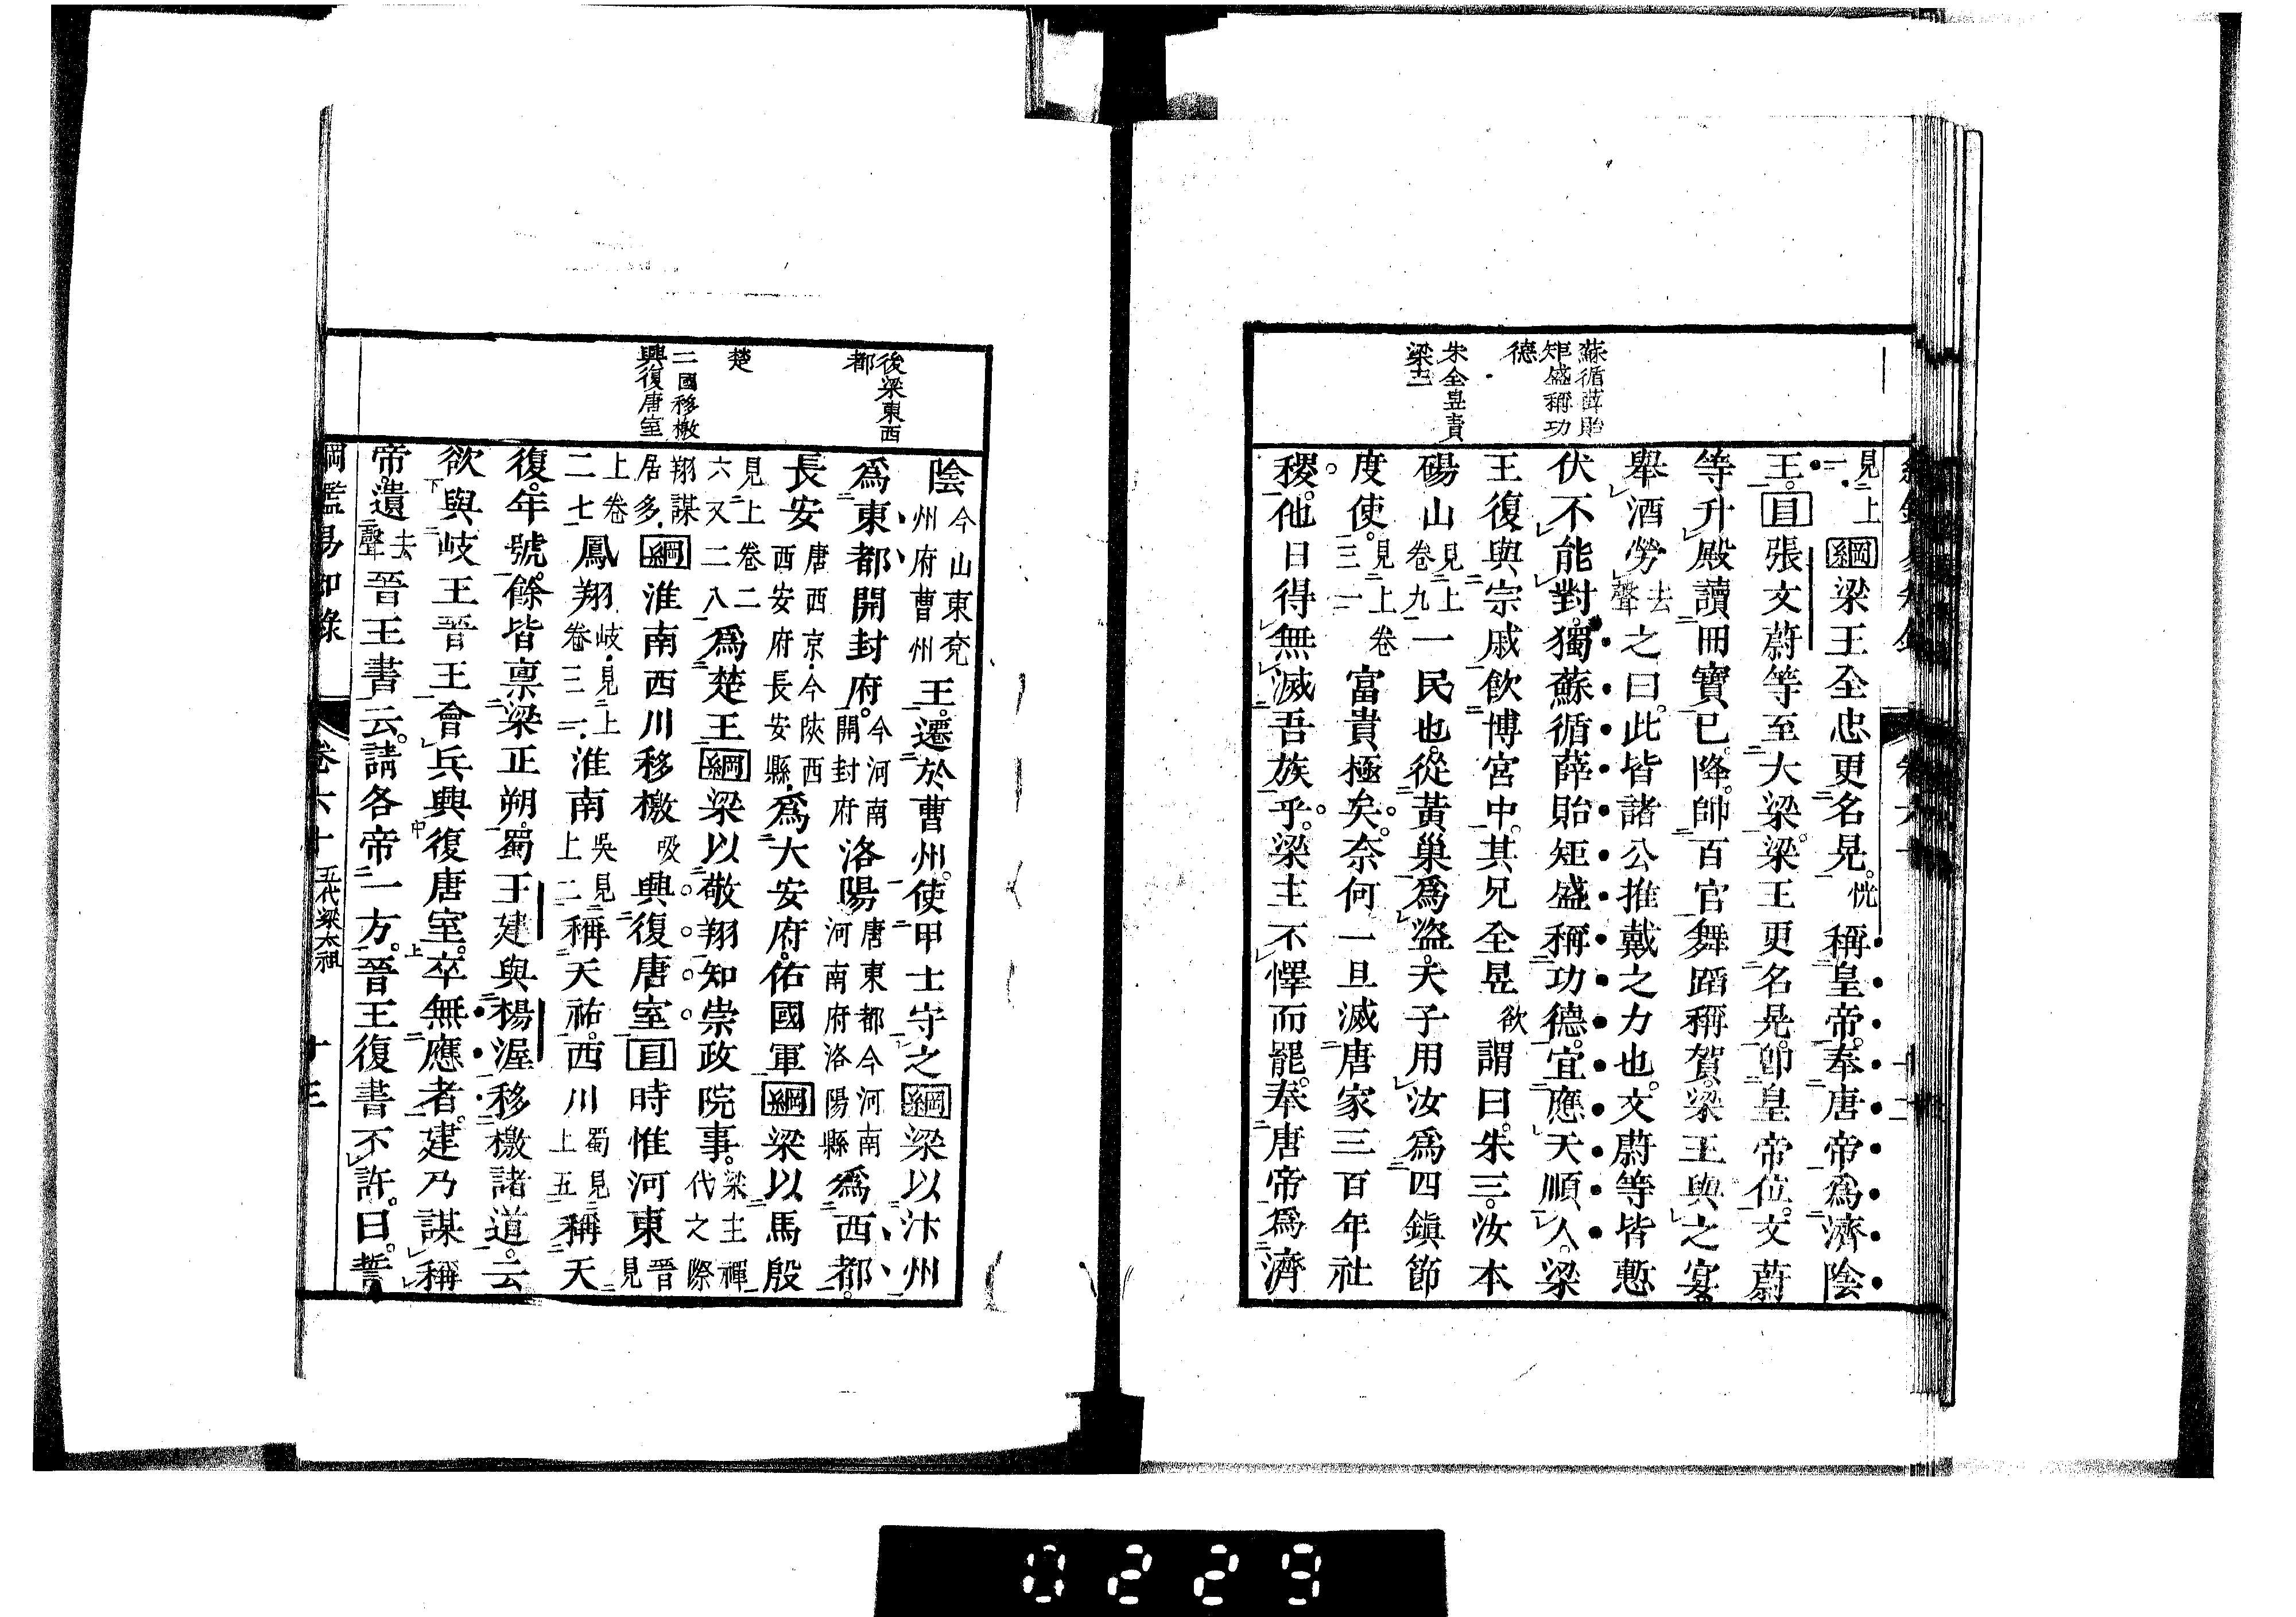 蘇循薛貽
矩盛稱功
德
朱全昱責
梁主
見上一綱梁王全忠更名晃恍稱皇帝奉唐帝為濟陰
王目張文蔚等至大梁梁王更名晃卽皇帝位文蔚
等升殿讀冊寶已降帥百官舞蹈稱賀梁王與之宴
舉酒勞去聲之曰此皆諸公推戴之力也文蔚等皆慙
伏不能對獨蘇循薛貽矩盛稱功德宜應天順人梁
王復與宗戚飲博宮中其兄全昱欲謂曰朱三汝本
碭山見上卷九一民也從黃巢為盜天子用汝為四鎮節
度使見上卷三一富貴極矣奈何一旦滅唐家三百年社
稷他日得無滅吾族乎梁主不懌而罷奉唐帝爲濟
後梁東西
都
楚
二國移檄
興復唐室
陰今山東兗州府曹州王遷於曹州使甲士守之綱梁以汴州
爲東都開封府今河南開封府洛陽唐東都今河南河南府洛陽縣爲西都
長安唐西京今陝西西安府長安縣爲大安府佑國軍綱梁以馬殷
見上卷二六又二八爲楚王綱梁以敬翔知崇政院事梁主禪代之際
翔謀居多綱淮南西川移檄吸興復唐室目時惟河東晉見
上卷二七鳳翔岐見上卷三一淮南吳見上二稱天祐西川蜀見上五稱天
復年號餘皆禀梁正朔蜀王建與楊渥移檄諸道云
欲與岐王晉王會兵興復唐室卒無應者建乃謀稱
帝遺去聲晉王書云請各帝一方晉王復書不許曰誓
綱鑑易知錄 卷六十 五代梁太祖 十三
0229